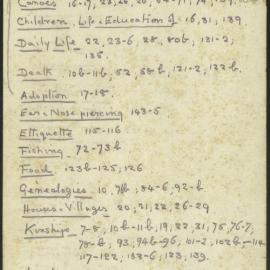 Canoes 16-17,
Children, Life & Education of 16, 31, 139.
Daily Life 22, 23-6, 28, 80b, 131-2,
135.
Death 10b-11b, 52, 58b, 121-2, 122b.
Adoption 17-18.
Ear & Nose piercing 143-5
Ettiquette 115-116
Fishing 72-73b
Food 123b-125, 126
Genealogies 10, 84-6, 92-b
Houses & Villages 20, 21, 22, 26-29
Kinship 7-8, 10b-11b, 19, 22, 31, 75, 76-7,
78-b, 93, 94b-96, 101-2, 102b-114
117-122, 133-6, 123, 139.